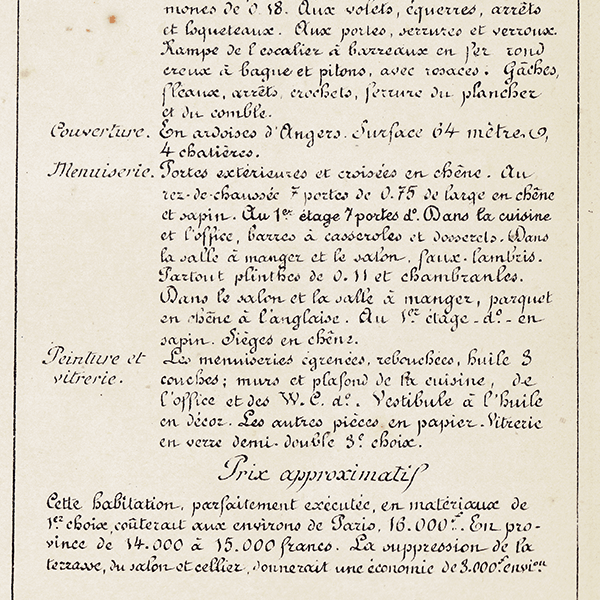 mones de 0.18. Aux volets, équerres, arrêts
et loqueteaux. Aux portes, serrures et verroux.
Rampe de l'escalier à barreaux en fer rond
creux à bague et pitons, avec rosaces. Gâches,
fleaux, arrêts, crochets, ferrure du plancher
et du comble.
Couverture. En ardoises d'Angers. Surface 64 mètres,
4 chatières.
Menuiserie. Portes extérieures et croisées en chêne. Au
rez-de-chaussée 7 portes de 0.75 de large en chêne
et sapin. Au 1er étage 7 portes do. Dans la cuisine
et l'office, barres à casseroles et dosserets. Dans
la salle à manger et le salon, faux-lambris.
Partout plinthes de 0.11 et chambranles.
Dans le salon et la salle à manger, parquet
en chêne à l'anglaise. Au 1er étage - do - en
sapin. Sièges en chêne.
Peinture et vitrerie. Les menuiseries égrenées, rebouchées, huile 3
couches; murs et plafond de la cuisine, de
l'office et des W.C. do. Vestibule à l'huile
en décor. Les autres pièces en papier. Vitrerie
en verre demi-double 3e choix.
Prix approximatif
Cette habitation, parfaitement exécutée, en matériaux de
1er choix, coûterait aux environs de Paris, 16.000f. En pro-
vince de 14.000 à 15.000 francs. La suppression de la
terrasse, du salon et cellier, donnerait une économie de 3.000f environ